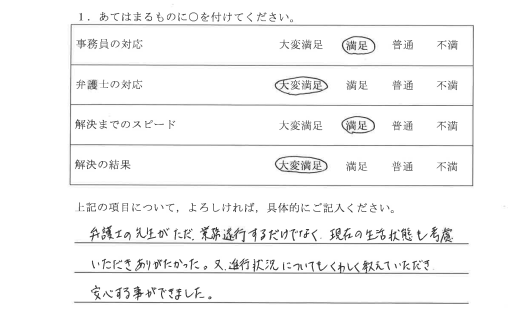 1．あてはまるものに○を付けてください。
事務員の対応 大変満足 満足 普通 不満
弁護士の対応 大変満足 満足 普通 不満
解決までのスピード 大変満足 満足 普通 不満
解決の結果 大変満足 満足 普通 不満
上記の項目について，よろしければ，具体的にご記入ください。
弁護士の先生がただ、業務遂行するだけでなく、現在の生活状態も考慮
いただきありがたかった。又、進行状況についてもくわしく教えていただき
安心する事ができました。